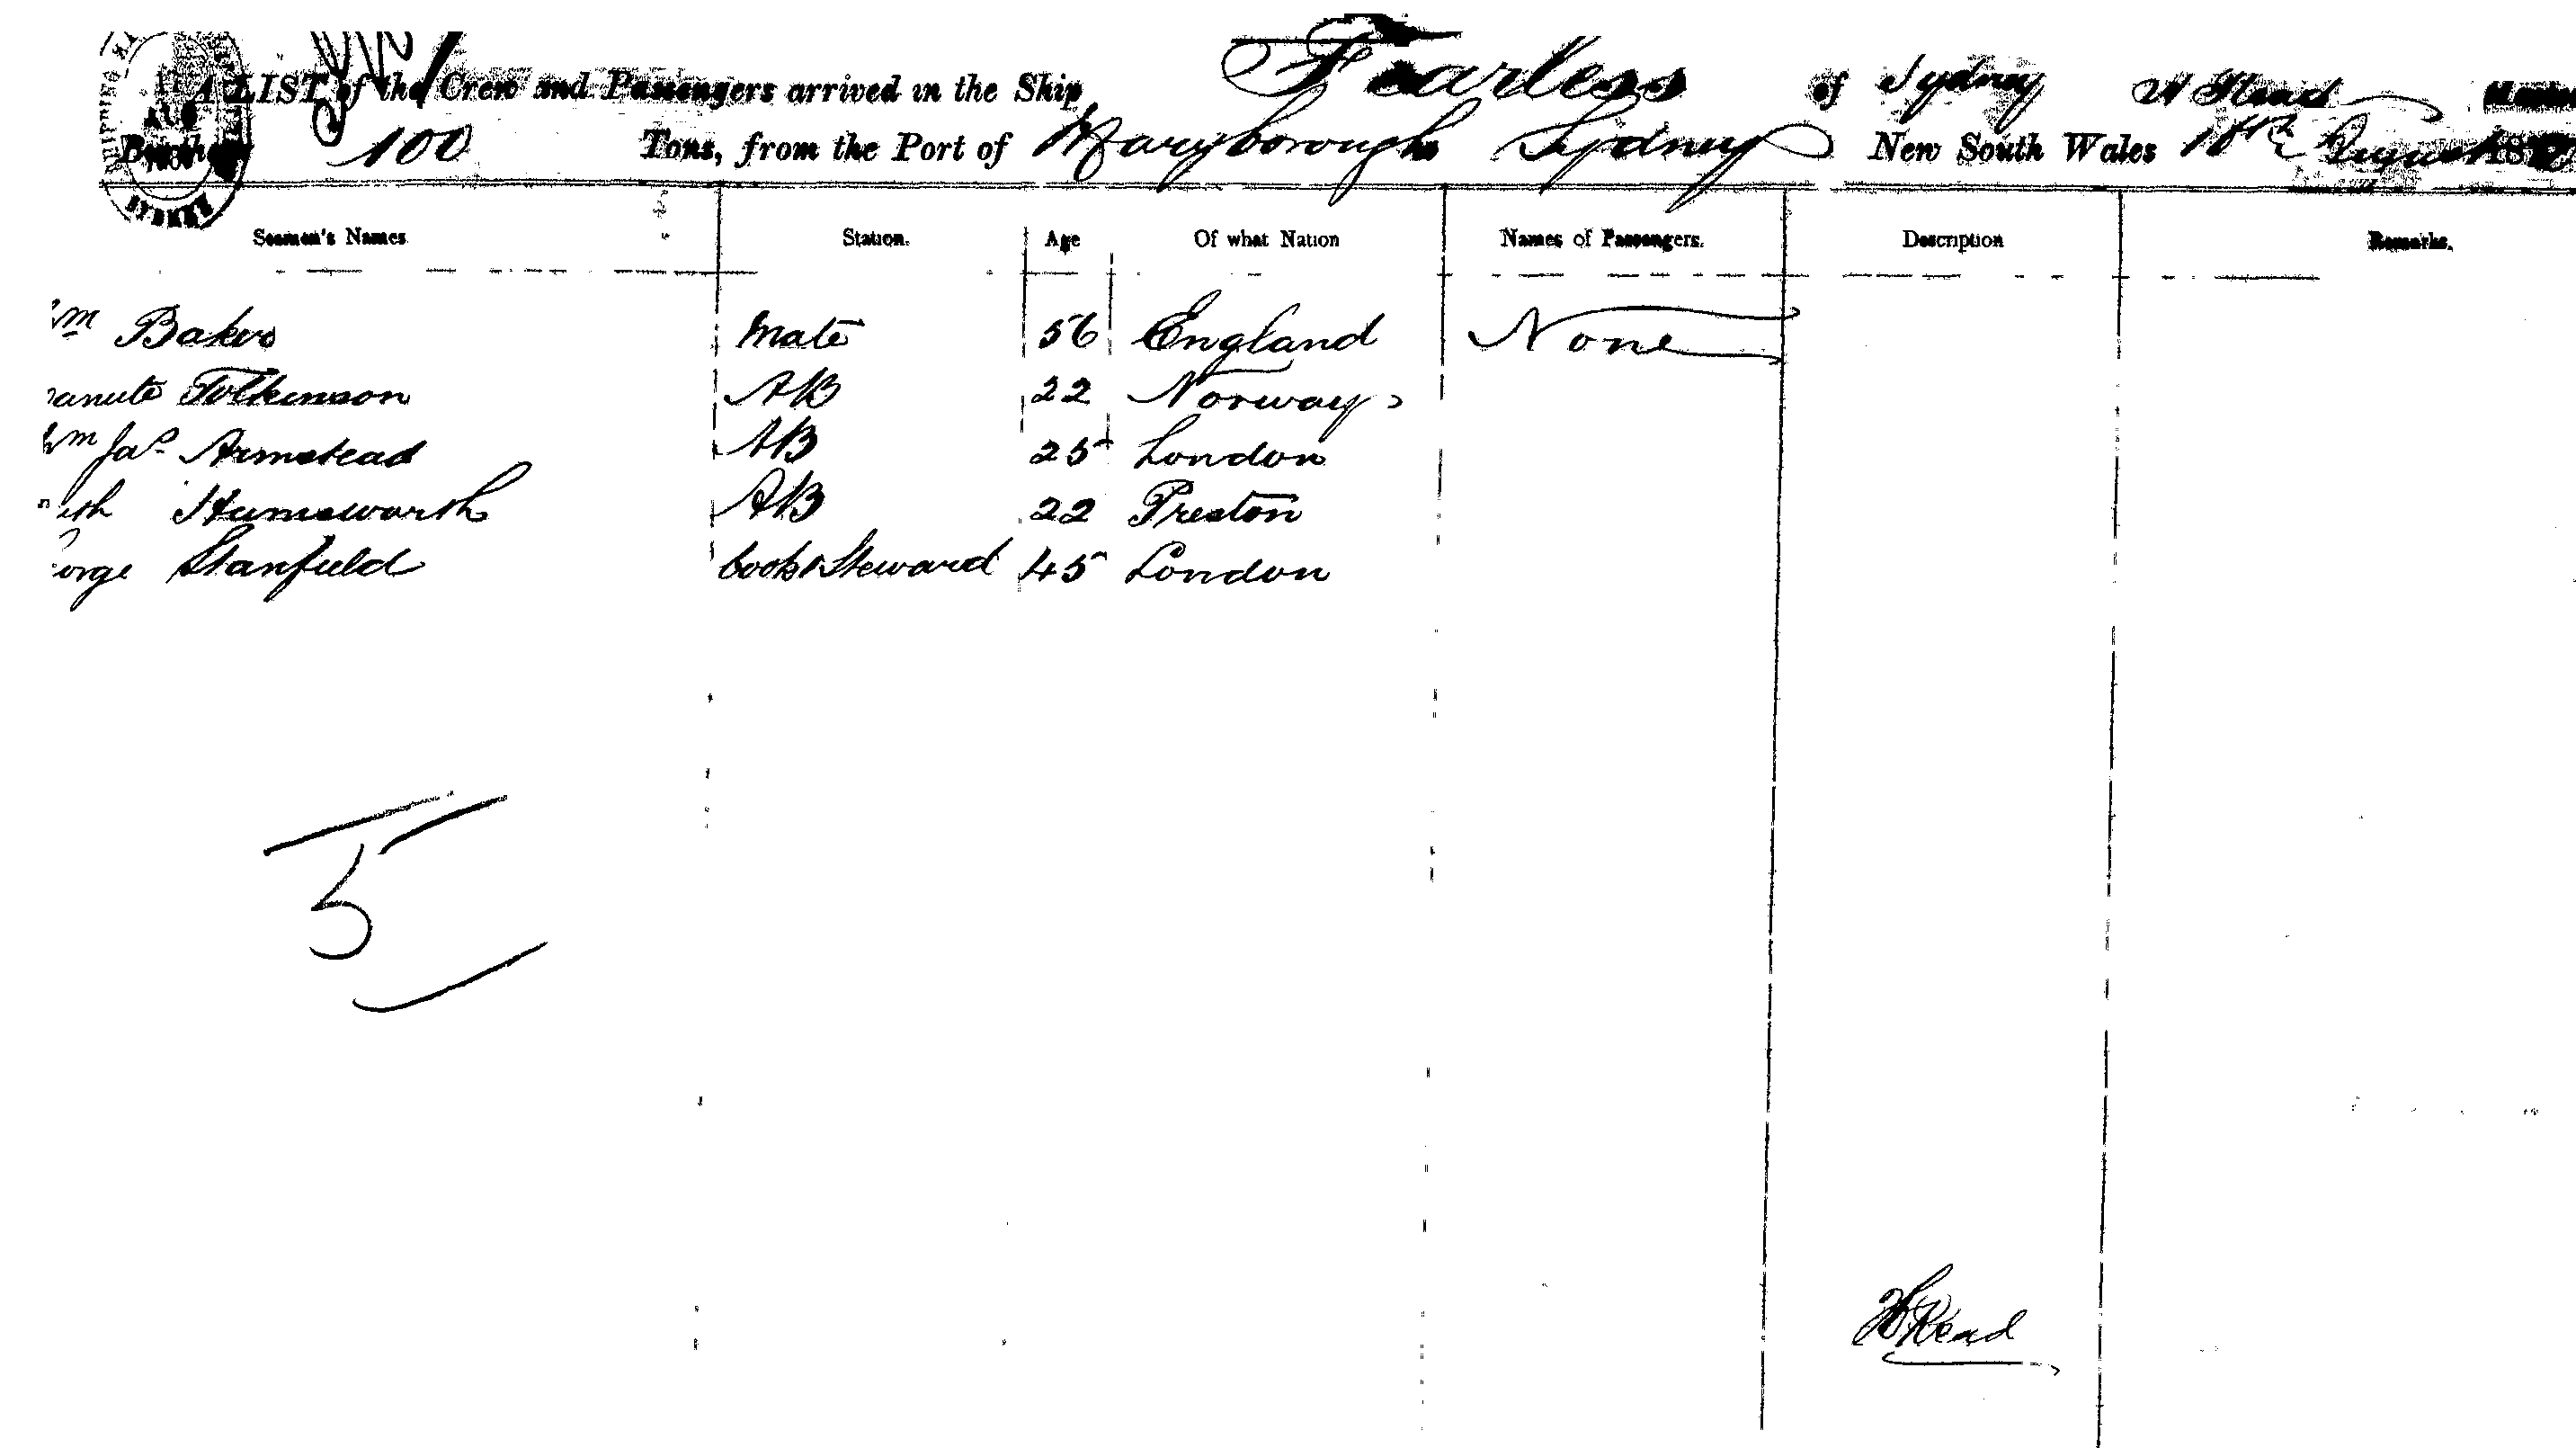 A LIST of the Crew and Passengers arrived in the Ship Fearless of Sydney Read Master
Burthen 100 Tons, from the Port of Maryborough Sydney New South Wales August 18
SYDNEY
Seamen's Names Station. Age Of what Nation Names of Passengers. Description Remarks.
Wm Baker Mate 56 England None
Tolkinson AB 22 Norway
Wm Jas Armstead AB 25 London
AB 22 Preston
George Stanfield Cook & Steward 45 London
5
Read